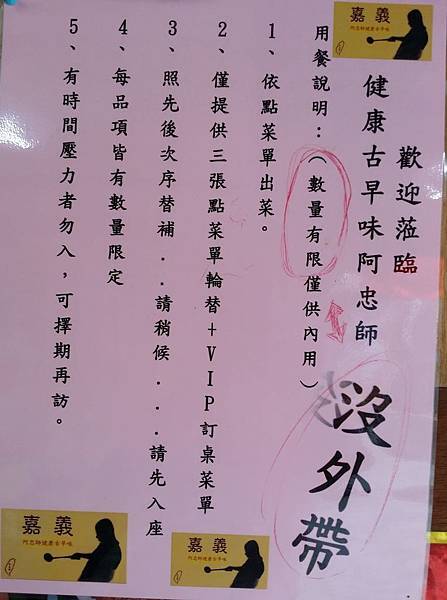 歡迎蒞臨
健康古早味阿忠師
沒外帶
用餐說明：（數量有限僅供內用）
1、依點菜單出菜。
2、僅提供三張點菜單輪替+VIP訂桌菜單
3、照先後次序替補．．請稍候．．．請先入座
4、每品項皆有數量限定
5、有時間壓力者勿入，可擇期再訪。
嘉義
嘉義
阿忠師健康古早味
嘉義
阿忠師健康古早味